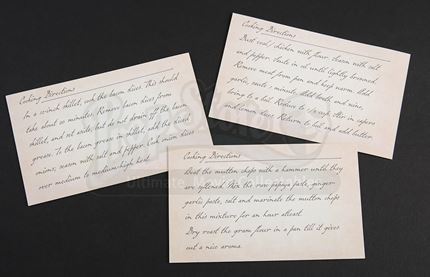 Cooking Directions
In a 12-inch skillet, cook the bacon dices. This should
take about 10 minutes. Remove bacon dices from
skillet, and set aside, but do not drain off the bacon
grease. To the bacon grease in skillet, add the diced
onions, season with salt and pepper. Cook onion dices
over medium to medium-high heat.
Cooking Directions
Dust veal/ chicken with flour. Season with salt
and pepper. Saute in oil until lightly browned.
Remove meat from pan and keep warm. Add
garlic, saute 1 minute. Add broth and wine,
bring to a boil. Reduce to 1/2 cup. Stir in capers
and lemon juice. Return to boil and add butter.
Cooking Directions
Beat the mutton chops with a hammer until they
are softened. Mix the raw papaya paste, ginger-
garlic paste, salt and marinate the mutton chops
in this mixture for an hour atleast.
Dry roast the gram flour in a pan till it gives
out a nice aroma.